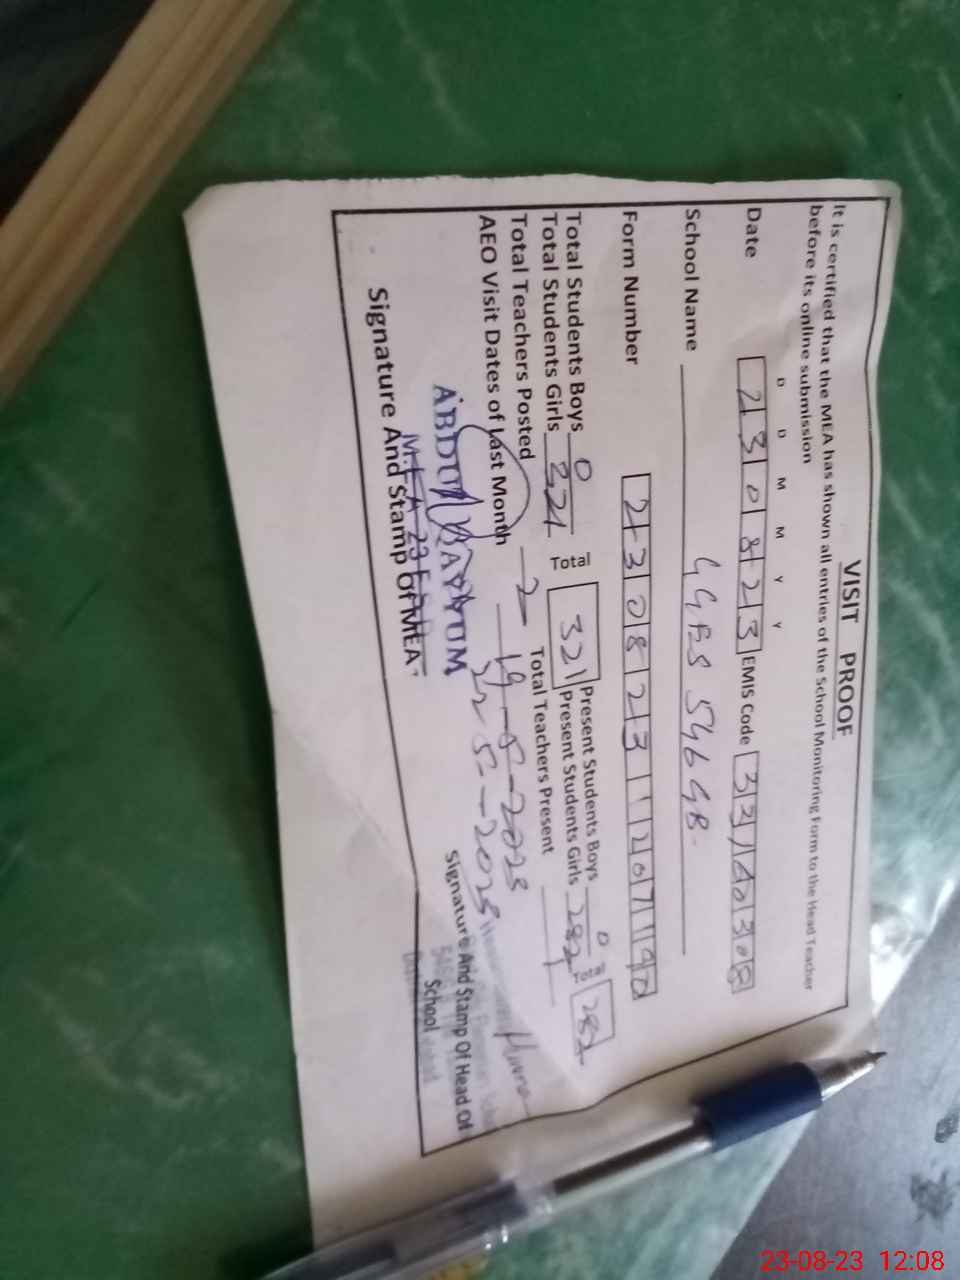 VISIT PROOF
It is certified that the MEA has shown all entries of the School Monitoring Form to the Head Teacher
before its online submission
D D M M Y Y
Date 230823 EMIS Code 33140308
School Name GGES 546 GB
Form Number 230823 1207190
Total Students Boys 0 Total 321 Present Students Boys 0 Total 282
Total Students Girls 321 Present Students Girls 282
Total Teachers Posted 2 Total Teachers Present 1
AEO Visit Dates of Last Month 19-5-2023
22-5-2023
ABDUL QAYYUM
Signature And Stamp Of MEA
Signature And Stamp Of Head Of
School
23-08-23 12:08